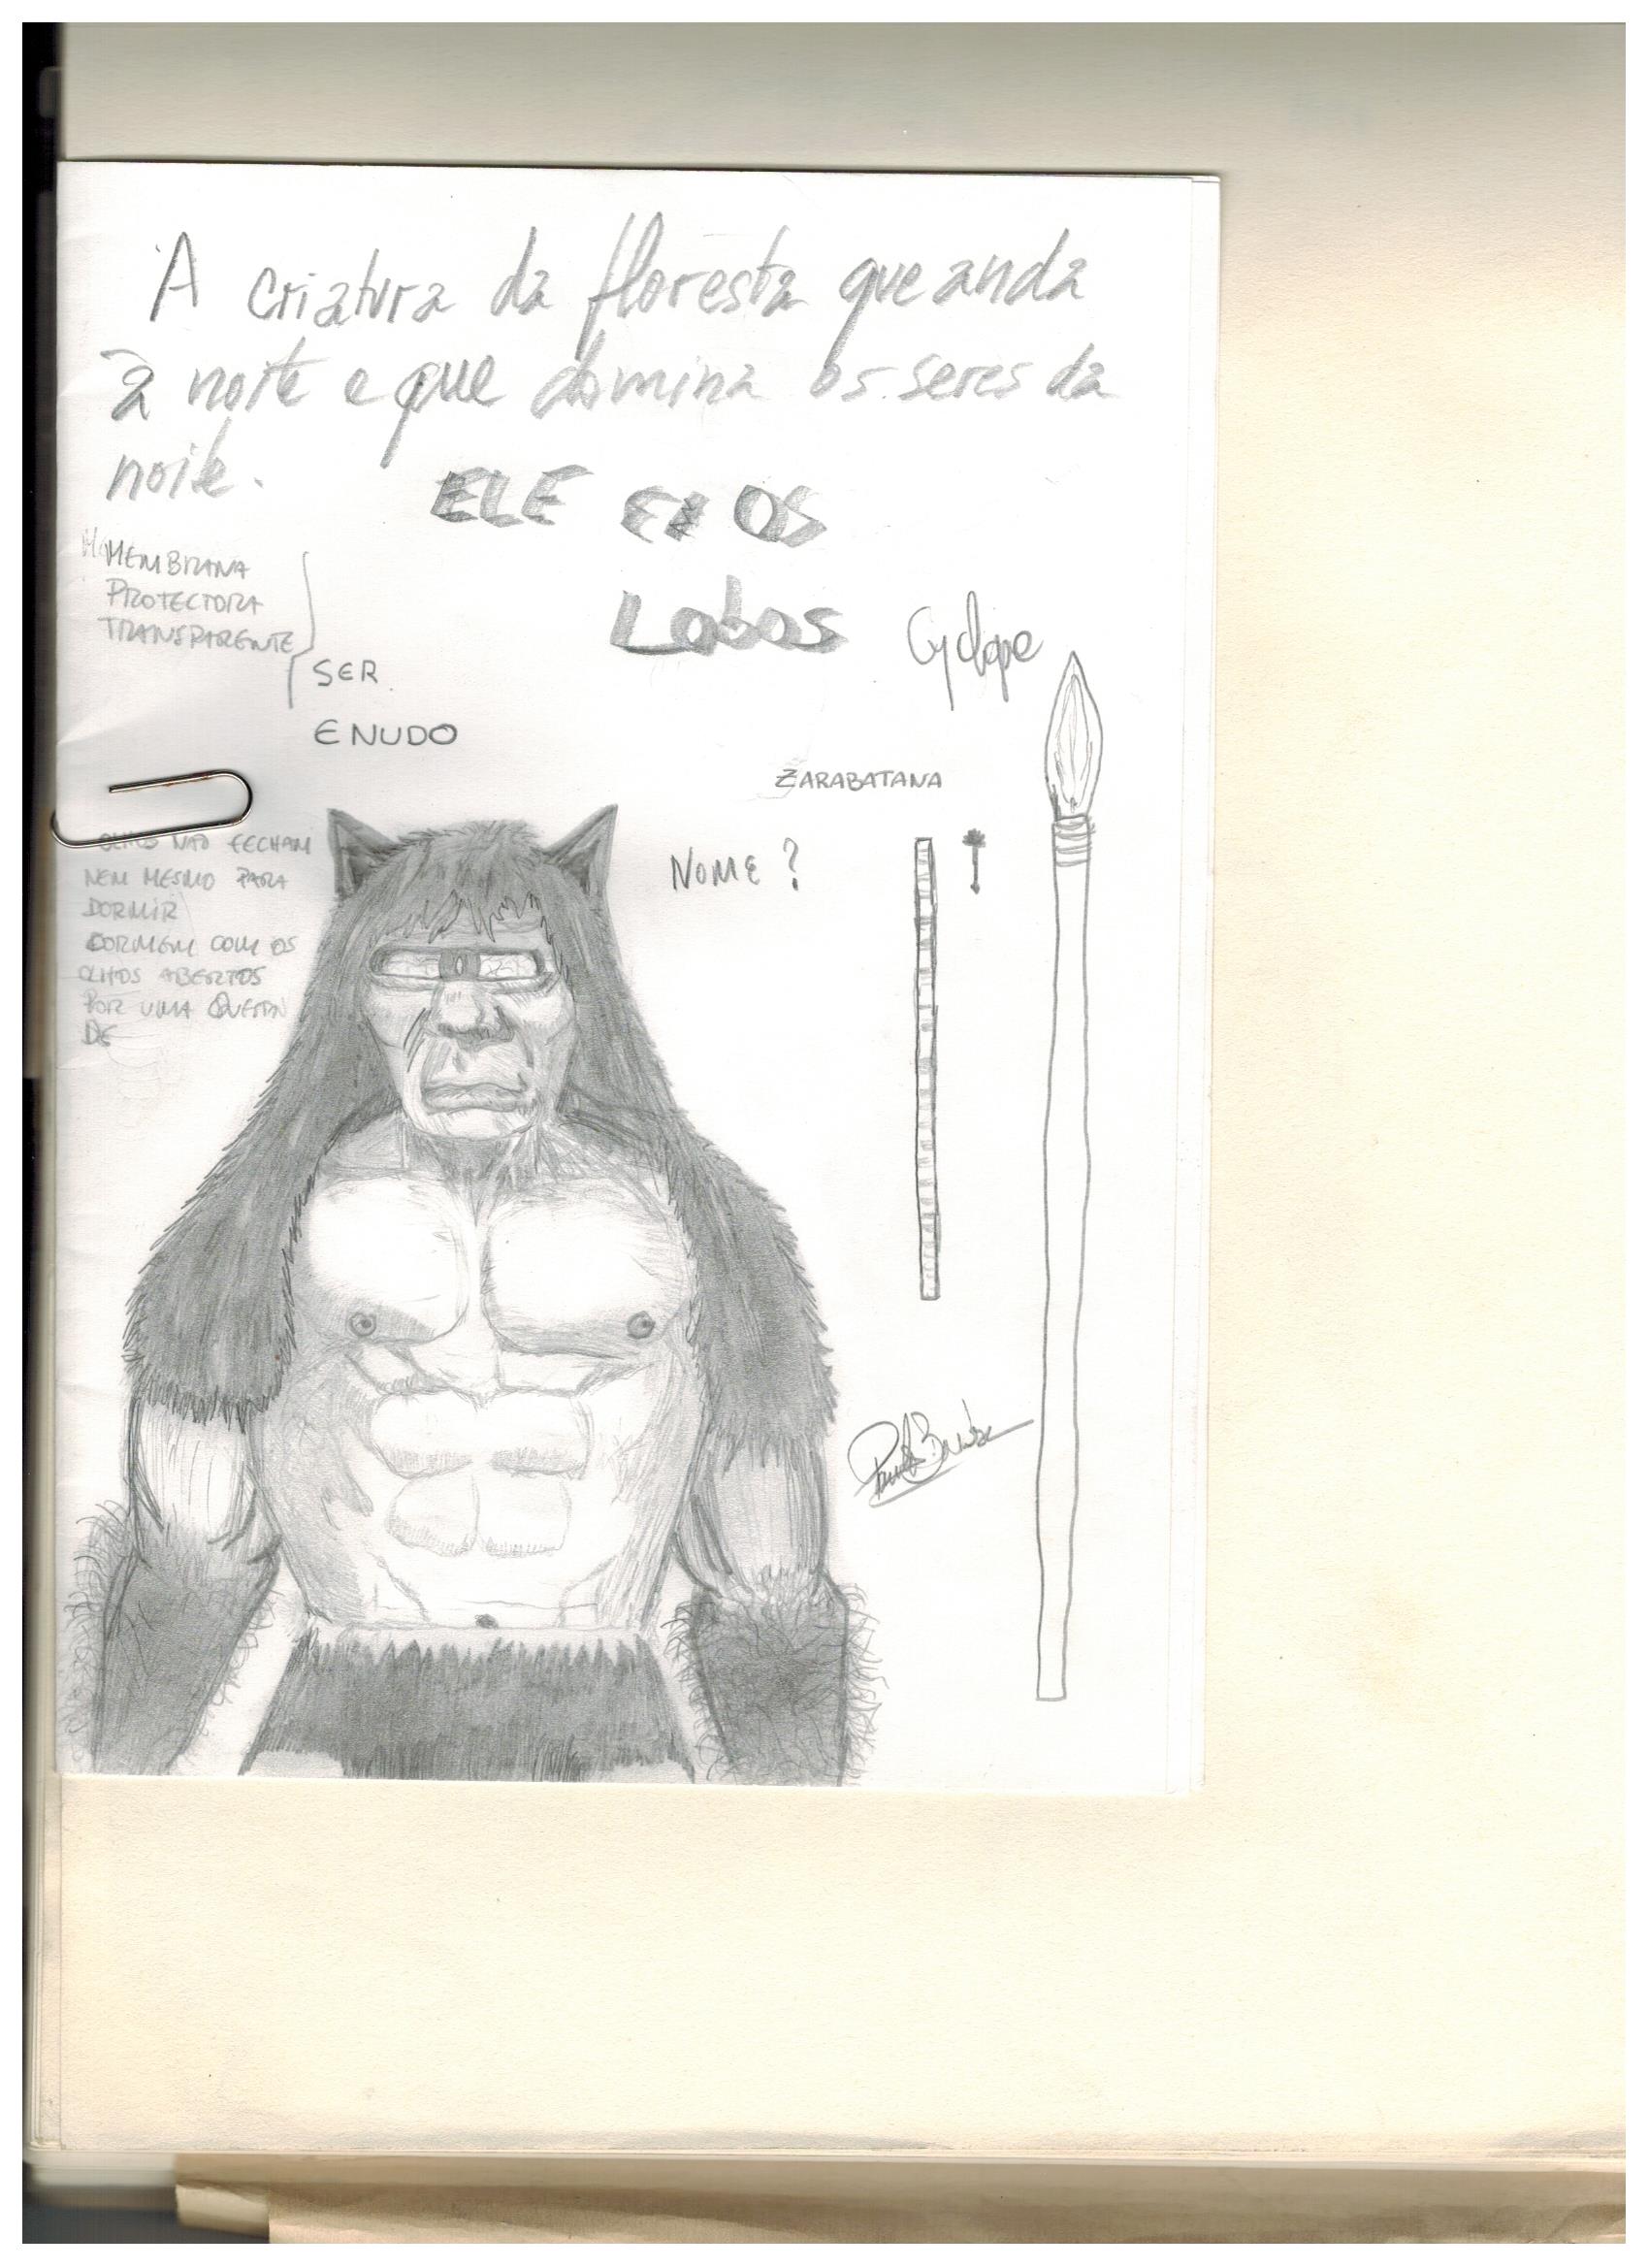 A criatura da floresta que anda
à noite e que domina os seres da
noite.
ELE E OS
Lobos
MEMBRANA
PROTECTORA
TRANSPARENTE
SER
ENUDO
Cyclope
ZARABATANA
NOME ?
OLHOS NÃO FECHAM
NEM MESMO PARA
DORMIR
DORMEM COM OS
OLHOS ABERTOS
POR UMA QUESTÃO
DE